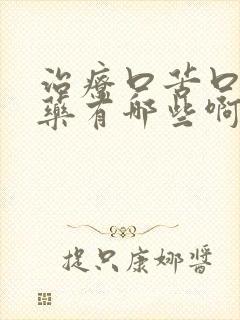 治療口苦口
藥有哪些啊
捉只康娜醬